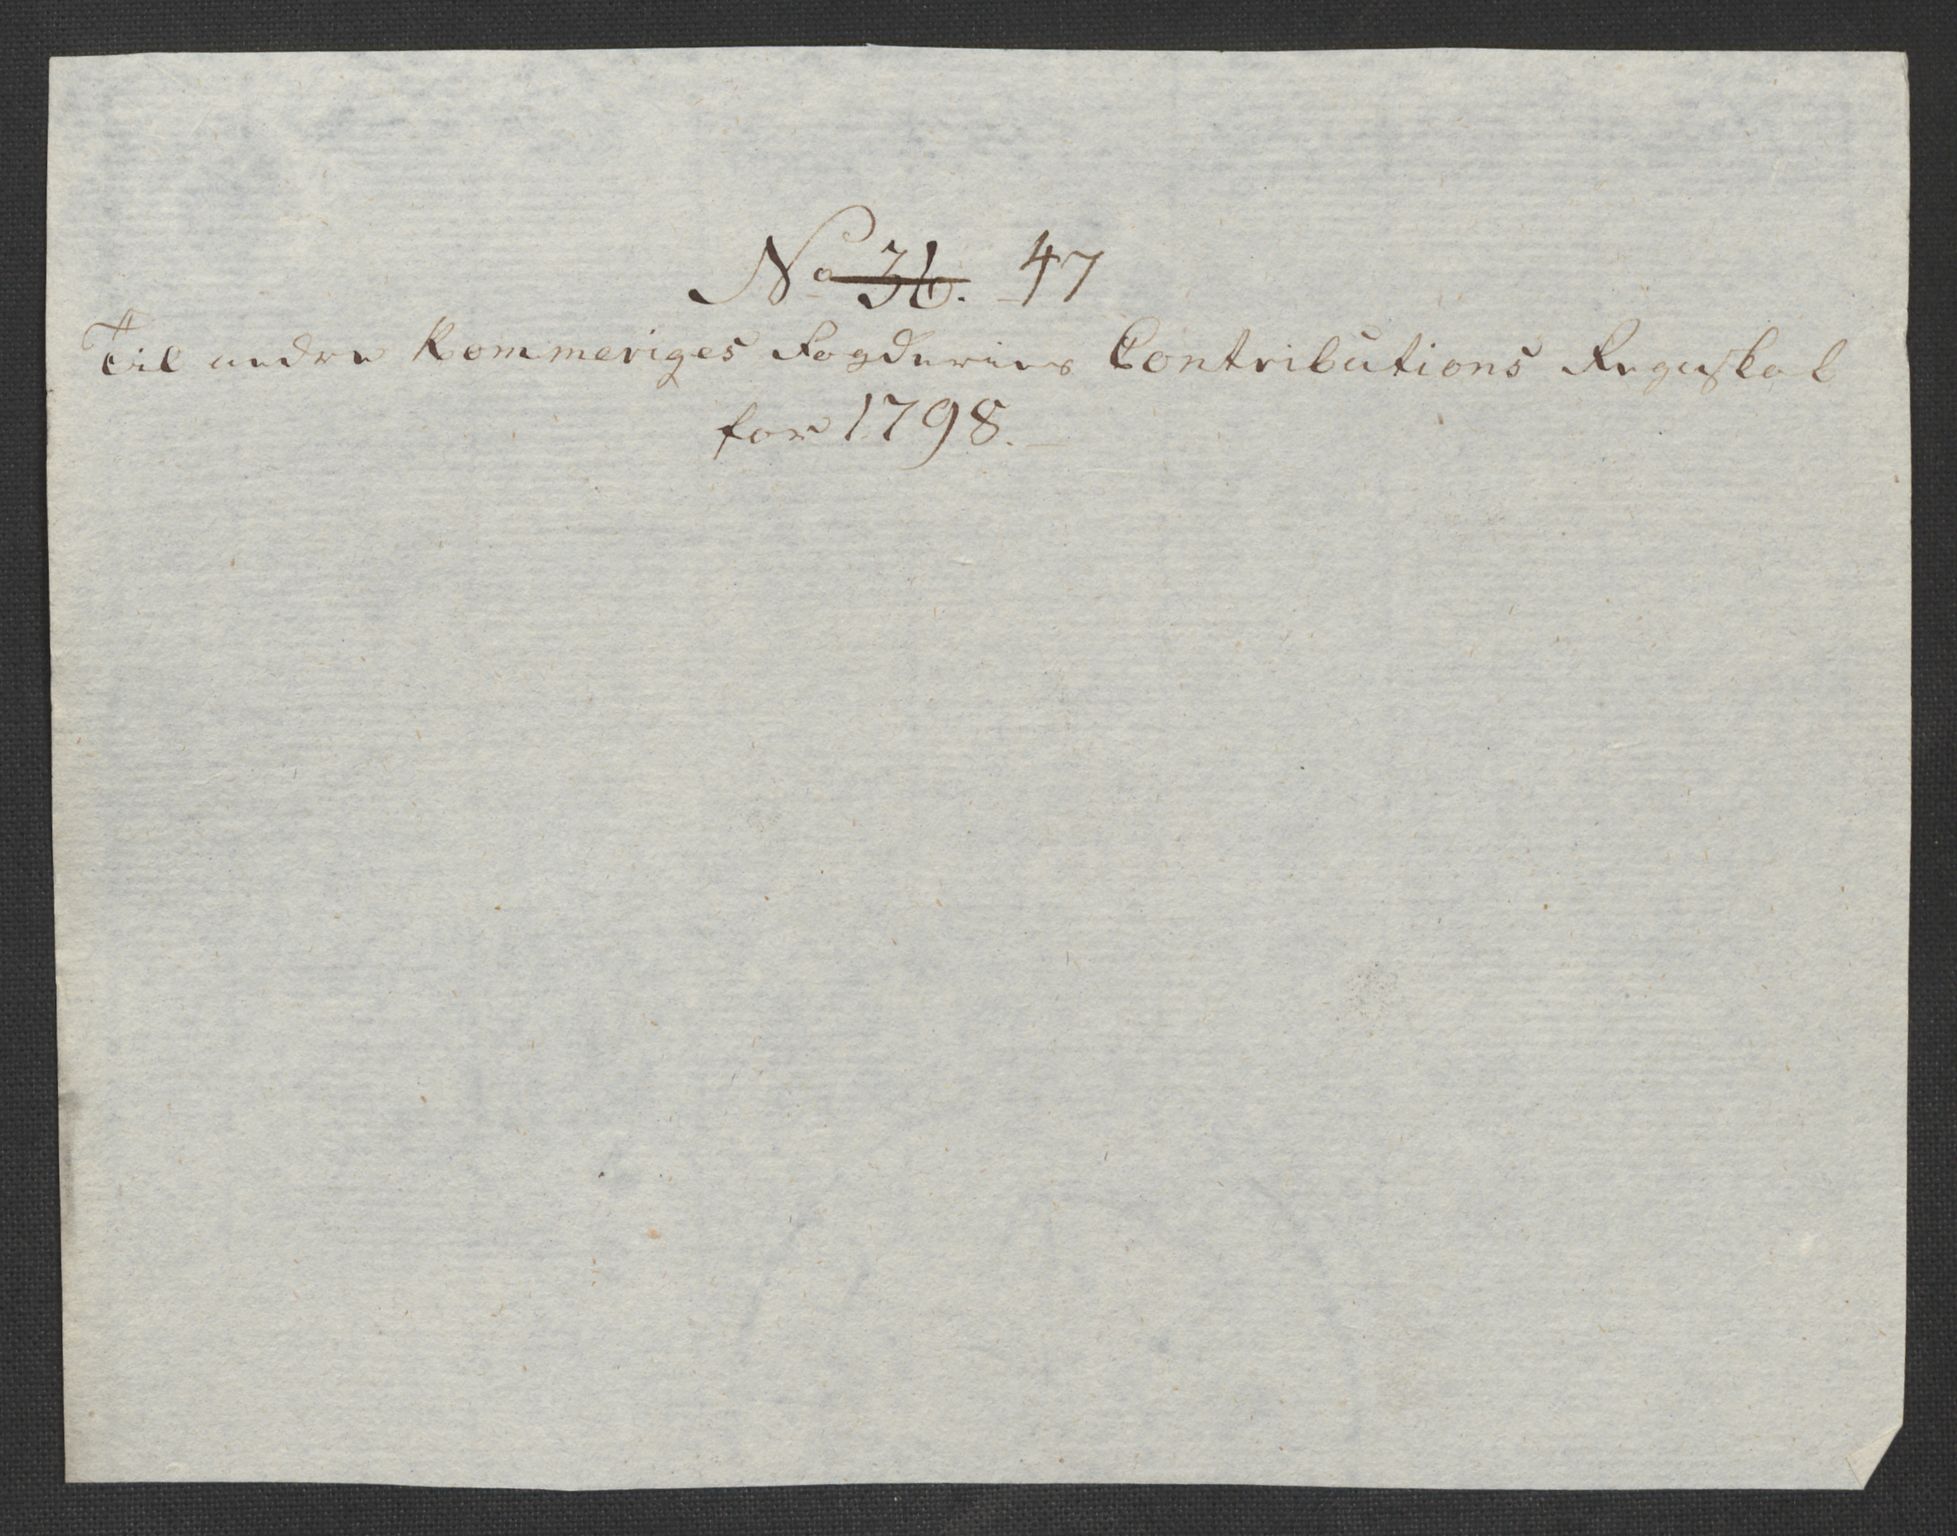 No 36. 47
Til nedre Rommeriges Fogderies Contributions Regnskab
for 1798.